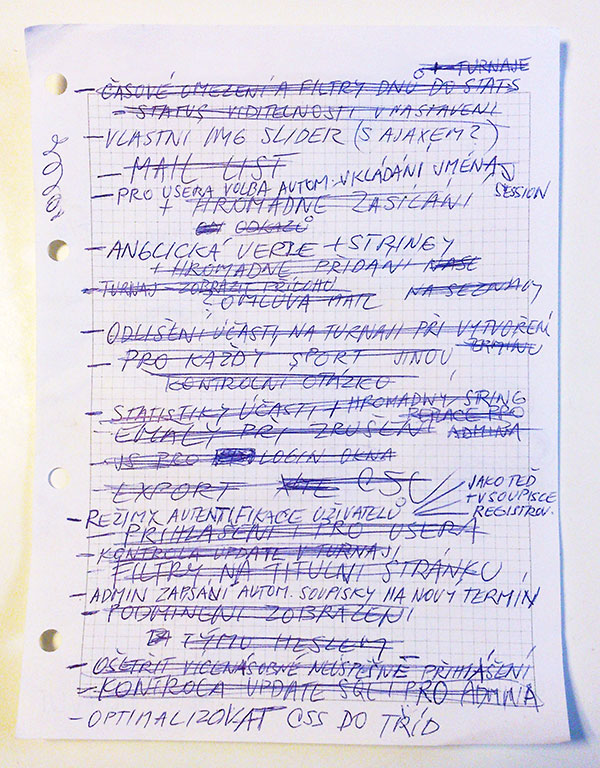 + TURNAJE
- ČASOVÉ OMEZENÍ A FILTRY DNŮ DO STATS
- STATUS VIDITELNOSTI V NASTAVENÍ
- VLASTNÍ IMG SLIDER (S AJAXEM?)
- MAIL LIST
- PRO USERA VOLBA AUTOM. VKLÁDÁNÍ JMÉNA
SESSION
+ HROMADNÉ ZASÍLÁNÍ
ODKAZŮ
- ANGLICKÁ VERZE + STRINGY
+ HROMADNÉ PŘIDÁNÍ
- TURNAJ ZOBRAZIT PŘÍCHO
NA SEZNAMY
OMLUVA MAIL
- ODLIŠENÍ ÚČASTI NA TURNAJI PŘI VYTVOŘENÍ
TERMÍNU
- PRO KAŽDÝ SPORT JINOU
KONTROLNÍ OTÁZKU
- STATISTIKY ÚČASTI + HROMADNÝ STRING
PRO
- EMAILY PŘI ZRUŠENÍ
ADMINA
- JS PRO LOGIN OKNA
- EXPORT CSV
JAKO TEĎ
+ V SOUPISCE
REGISTROV.
- REŽIMY AUTENTIFIKACE UŽIVATELŮ
- PŘIHLÁŠENÍ I PRO USERA
- KONTROLA UPDATE V TURNAJI
- FILTRY NA TITULNÍ STRÁNKU
- ADMIN ZAPSÁNÍ AUTOM. SOUPISKY NA NOVÝ TERMÍN
- PODMÍNĚNÍ ZOBRAZENÍ
TÝMU HESLEM
- OŠETŘIT VÍCENÁSOBNÉ NEÚSPĚŠNÉ PŘIHLÁŠENÍ
- KONTROLA UPDATE SQL I PRO ADMINA
- OPTIMALIZOVAT CSS DO TŘÍD